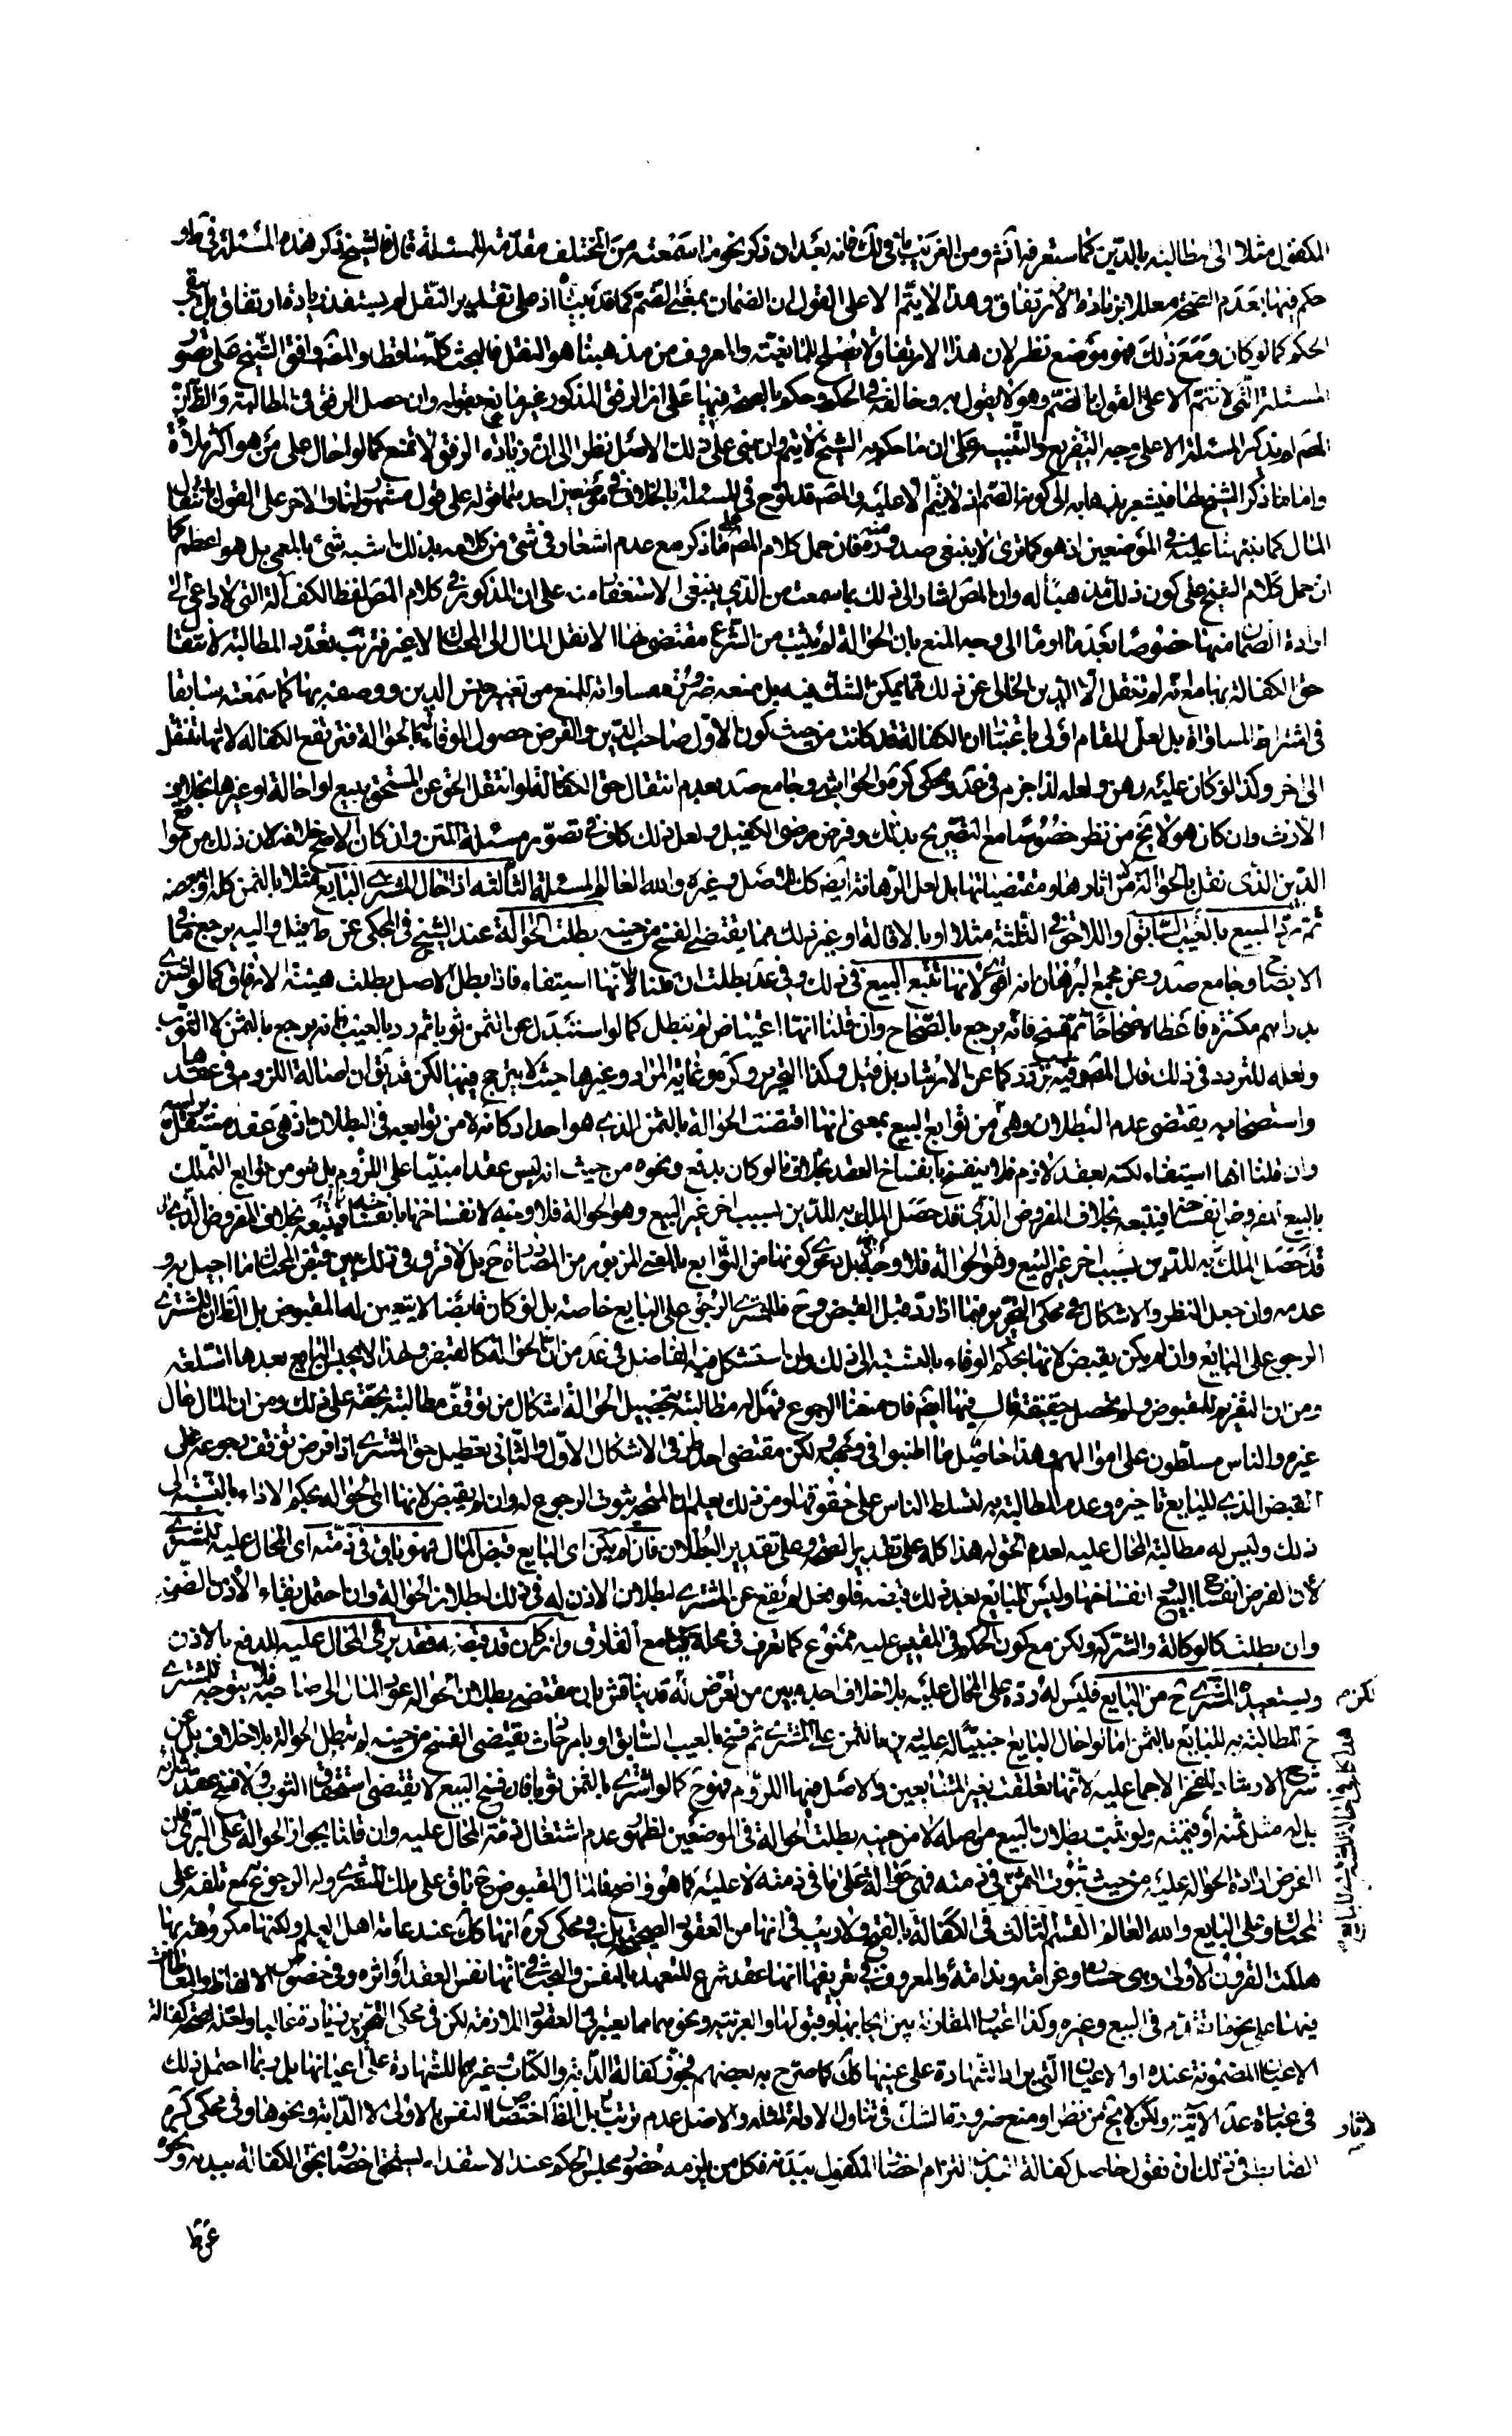 المكفول مثلا الى مطالبته بالدين كما ستعرفه انتهى ومن الغريب ما في لك فانه بعد ان ذكر نحو ما سمعته من المختلف مقدمة للمسئلة قال ان الشيخ ذكر هذه المسئلة في ط و
حكم فيها بعدم الصحة معللا بزيادة الارتفاق وهذا لا يتم الا على القول بان الضمان بمعنى الضم كما قد بيناه اذ على تقدير النقل لم يستفد زيادة ارتفاق بل بقى
الحكم كما لو كان ومع ذلك فهو موضع نظر لان هذا الارتفاق لا يصلح للمانعية والمعروف من مذهبنا هو النقل فالبحث كله ساقط والمصنف وافق الشيخ على تصور
المسئلة التي لا تتم الا على القول بالضم وهو لا يقول به وخالفه في الحكم وحكم بالصحة فيها على ان الرفق المذكور غير مانع بقوله وان حصل الرفق في المطالبة والظاهر ان
المصـ لم يذكر المسئلة الا على وجه التفريع والتنبيه على ان ما حكم به الشيخ لا يتم وان بنى على ذلك الاصل نظرا الى ان زيادة الرفق لا تمنع كما لو احال على من هو اكثر ملاءة
واما ما ذكر الشيخ ظاهرا فيشعر بذهابه الى كونه الضم اذ لا يتم الا عليه والمصـ قد لوح في المسئلة بالخلاف في موضعين احدهما قوله على قول مشهور لنا والاخر على القول بانتقال
المال كما نبهنا عليه في الموضعين اذ هو كما ترى لا ينبغي صدوره منه فان حمل كلام المصـ على ما ذكر مع عدم اشعار في شئ من كلامه بذلك ما اشبه شئ بالمعمى بل هو اعظم كما
ان حمل كلام الشيخ على كون ذلك مذهبا له وان المصـ اشار الى ذلك بما سمعت من الذي ينبغي الاستغفار منه على ان المذكور في كلام المصـ لفظ الكفالة التي لا داعي الى
ارادة الضمان منها خصوصا بعد ما اومأ الى وجه المنع بان الحوالة لم يثبت من الشرع مقتضى لها الا نقل المال الى المحتال لا غير فترتب تعدد المطالبة لانتقال
حق الكفالة بها مع انه لم تنتقل الا الدين الخالي عن ذلك مما يمكن الشك فيه بل منعه ضرورة مساواته للمنع من تغير جنس الدين ووصفه بها كما سمعته سابقا
في اشتراط المساواة بل لعل المقام اولى باعتبار ان الكفالة قد كانت من حيث كون الاول صاحب الدين والفرض حصول الوفاء له بالحوالة فترتفع الكفالة لا انها تنتقل
الى اخر وكذا لو كان عليه رهن ولعله لذا جزم في عد ومحكى كره والحواشي وجامع صد بعدم انتقال حق الكفالة لو انتقل الحق عن المستحق ببيع او احالة او غيرها بخلاف
الارث وان كان هو لا يخ من نظر خصوصا مع التصريح بذلك وفرض رضى الكفيل ولعل ذلك كاف في تصوير مسئلة المتن وان كان الاصح خلافه لان ذلك من توابع
الدين الذي نقل بالحوالة من اثارها ومقتضياتها بل لعل الرهانة ايضا كك فتأمل وغيره والله العالم المسئلة الثالثة اذا احال المشترى البايع مثلا بالثمن كله او بعضه
ثم رد المبيع بالعيب السابق او اللاحق في الثلثة مثلا او بالاقالة او غير ذلك مما يقتضى الفسخ من حينه بطلت الحوالة عند الشيخ في المحكى عن ط قيل واليه يرجع ما في
الايضاح وجامع صد وعن مجمع البرهان انه اقوى لانها تتبع البيع في ذلك وفي عد بطلت ان قلنا لأنها استيفاء فاذا بطل الاصل بطلت هيئة الارفاق كما لو اشترى
بدراهم مكسرة فاعطاه صحاحا ثم فسخ فانه يرجع بالصحاح وان قلنا انها اعتياض لم تبطل كما لو استبدل عن الثمن ثوبا ثم رد بالعيب فانه يرجع بالثمن لا الثوب
ولعله للتردد في ذلك قال المصـ وفيه تردد كما عن الارشاد بل قيل وكذا التحرير وكره وغاية المراد وغيرها حيث لا يترجح فيها لكن قد يق ان اصالة اللزوم في عقدها
واستصحابه يقتضى عدم البطلان وهي من توابع البيع بمعنى انها اقتضت الحوالة بالثمن الذي هو احد اركانه لا من توابعه في البطلان اذ هي عقد مستقل برأسه
وان قلنا انها استيفاء لكنه بعقد لازم فلا ينفسخ بانفساخ العقد بخلاف ما لو كان بدفع ونحوه من حيث انه ليس عقدا مبنيا على اللزوم بل هو من توابع التملك
بالبيع المفروض انفساخه فيتبعه بخلاف المفروض الذي قد حصل الملك به للدين بسبب اخر غير البيع وهو الحوالة فلا وجه لانفساخها بانفساخه
قد حصل الملك به للدين بسبب اخر غير البيع وهو الحوالة فلا وجه بل دعوى كونها من التوابع بالمعنى المزبور من المصادرة ح بل لا فرق في ذلك بين قبض المحتال ما احيل به و
عدمه وان جعل النظر والاشكال في محكى التحرير فيما اذا رد قبل القبض وح فللمشترى الرجوع على البايع خاصة بل لو كان قابضا لا يتعين له المقبوض بل الظاهر ان للمشترى
الرجوع على البايع وان لم يكن يقبض لانها بحكم الوفاء بالنسبة الى ذلك وان استشكل فيه الفاضل في عد من ان الحوالة كالقبض ولهذا لا يحبس البايع بعدها السلعة
ومن ان التغريم للمقبوض ولم يحصل حقيقة قال فيها ايضا فان منعنا الرجوع فهل له مطالبته بتحصيل الحوالة اشكال من توقف مطالبته بحقه على ذلك ومن ان المال مال
غيره والناس مسلطون على اموالهم وهذا حاصل ما اطنبوا في وجهه لكن مقتضى احد في الاشكال الاول والثاني تعطيل حق المشترى اذا فرض توقف رجوعه على
القبض الذي للبايع تاخيره وعدم المطالبة به لتسلط الناس على حقوقها ومن ذلك يعلم ان المتجه ثبوت الرجوع له وان لم يقبض لانها اى الحوالة بحكم الاداء بالنسبة الى
ذلك وليس له مطالبة المحال عليه لعدم الحق له هذا كله على تقدير الصحة وعلى تقدير البطلان فان لم يكن اى البايع قبض المال فهو باق في ذمته اى المحال عليه للمشترى
لأن الفرض انفساخ البيع انفساخها وليس للبايع بعد ذلك قبضه فلو فعل لم يقع عن المشترى لبطلان الاذن له في ذلك ببطلان الحوالة وان احتمل بقاء الاذن الضمني
وان بطلت كالوكالة والشركة ولكن مع كون الحكم في المقيس عليه ممنوع كما تعرف في محله مع الفارق وان كان قد قبضه فقد برئ المحال عليه للدفع بالاذن
ويستعيده المشترى ح من البايع فليس له رده على المحال عليه بلا خلاف اجده بين من تعرض له قد يناقش بان مقتضى بطلان الحوالة عود المال الى صاحبه فلا يتوجه للمشترى
ح المطالبة به للبايع بالثمن اما لو احال البايع اجنبيا له عليه دين بالثمن على المشترى ثم فسخ بالعيب السابق او بامر حادث يقتضى الفسخ من حينه لم تبطل الحوالة بلا خلاف بل عن
شرح الارشاد للفخر الاجماع عليه لأنها تعلقت بغير المتبايعين والاصل فيها اللزوم فهو ح كما لو اشترى بالثمن ثوبا فان فسخ البيع لا يقتضى استحقاق الثوب ولا فسخ عقد مشتريه
بل له مثل ثمنه او قيمته ولو ثبت بطلان البيع من اصله لا من حينه بطلت الحوالة في الموضعين لظهور عدم اشتغال ذمة المحال عليه وان قلنا بجواز الحوالة على البرى فان
الغرض ارادة الحوالة عليه من حيث ثبوت الثمن في ذمته فهي حوالة على ما في ذمته لا عليه كما هو واضح فالمال المقبوض ح باق على ملك المشترى وله الرجوع مع تلفه على
المحتال وعلى البايع والله العالم القسم الثالث في الكفالة بالفتح ولا ريب في انها من العقود الصحيحة بل وفي محكى كره انها كك عند عامة اهل العلم ولكنها مكروهة بها
هلكت القرون الاولى وهي خسارة وغرامة وندامة والمعروف في تعريفها انها عقد شرع للتعهد بالنفس والبحث في انها نفس العقد او اثره وفي خصوص الالفاظ والمعاطاة
فيها على نحو ما تقدم في البيع وغيره وكذا اعتبار المقارنة بين ايجابها وقبولها والعربية ونحوهما مما يعتبر في العقود اللازمة لكن في محكى التحرير زيادة غالبا ولعله لصحة كفالة
الاعيان المضمونة عنده او الاعيان التي يراد الشهادة على عينها كك كما صرح به بعضهم فجوز كفالة الدابة والكتاب غيرهما للشهادة على اعيانها بل ربما احتمل ذلك
في عبارة عد الآتية ولكن لا يخ من نظر او منع ضرورة الشك في تناول الادلة لمثله والاصل عدم ترتب بل الظاهر اختصاص النفس بالاولى لا الدابة ونحوها وفي محكى كره
الضابط في ذلك ان نقول حاصل كفالة البدن التزام احضار المكفول ببدنه فكل من يلزمه حضور مجلس الحكم عند الاستعداء يستحق احضاره بحق الكفالة ببدنه ونحوه